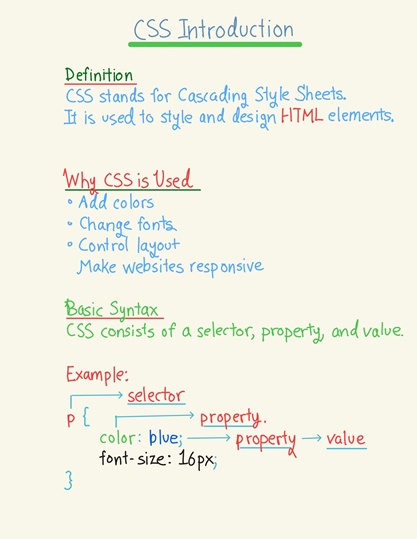 CSS Introduction
Definition
CSS stands for Cascading Style Sheets.
It is used to style and design HTML elements.
Why CSS is Used
• Add colors
• Change fonts
• Control layout
Make websites responsive
Basic Syntax
CSS consists of a selector, property, and value.
Example:
→ selector
p { → property.
color: blue; → property → value
font-size: 16px;
}